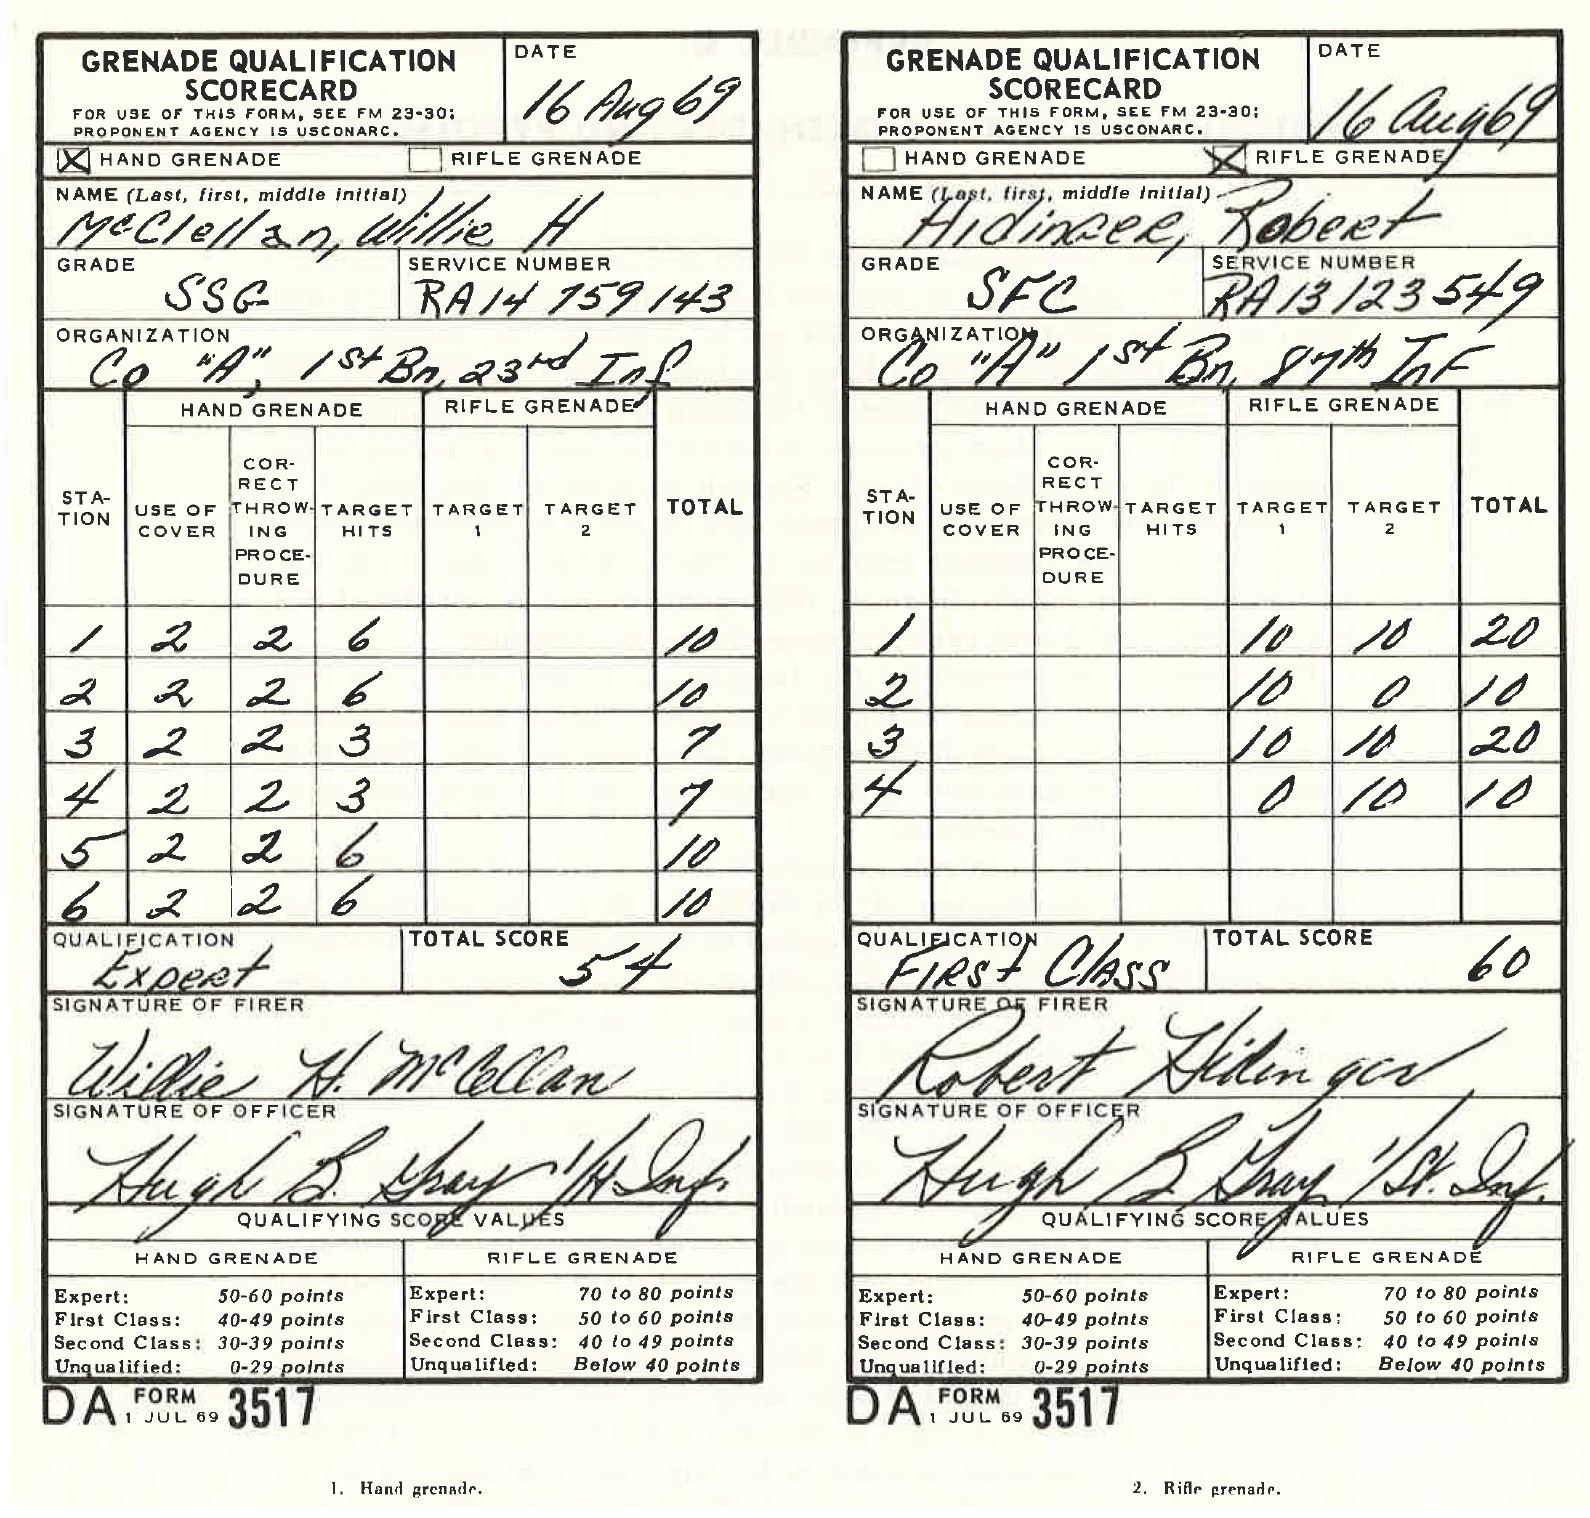 GRENADE QUALIFICATION
SCORECARD
FOR USE OF THIS FORM, SEE FM 23-30;
PROPONENT AGENCY IS USCONARC.
DATE
16 Aug 69
X HAND GRENADE RIFLE GRENADE
NAME (Last, first, middle initial)
McClellan, Willie H
GRADE
SSG
SERVICE NUMBER
RA14 759143
ORGANIZATION
Co "A", 1st Bn, 23rd Inf
HAND GRENADE RIFLE GRENADE
STA-
TION
USE OF
COVER
COR-
RECT
THROW-
ING
PROCE-
DURE
TARGET
HITS
TARGET
1
TARGET
2
TOTAL
1 2 2 6 10
2 2 2 6 10
3 2 2 3 7
4 2 2 3 7
5 2 2 6 10
6 2 2 6 10
QUALIFICATION
Expert
TOTAL SCORE
54
SIGNATURE OF FIRER
Willie H. McClellan
SIGNATURE OF OFFICER
Hugh B. Gray 1/Lt Inf.
QUALIFYING SCORE VALUES
HAND GRENADE RIFLE GRENADE
Expert: 50-60 points Expert: 70 to 80 points
First Class: 40-49 points First Class: 50 to 60 points
Second Class: 30-39 points Second Class: 40 to 49 points
Unqualified: 0-29 points Unqualified: Below 40 points
DA FORM 3517
1 JUL 69
1. Hand grenade.
GRENADE QUALIFICATION
SCORECARD
FOR USE OF THIS FORM, SEE FM 23-30;
PROPONENT AGENCY IS USCONARC.
DATE
16 Aug 69
HAND GRENADE X RIFLE GRENADE
NAME (Last, first, middle initial)
Hidinger, Robert
GRADE
SFC
SERVICE NUMBER
RA13123549
ORGANIZATION
Co "A" 1st Bn, 87th Inf
HAND GRENADE RIFLE GRENADE
STA-
TION
USE OF
COVER
COR-
RECT
THROW-
ING
PROCE-
DURE
TARGET
HITS
TARGET
1
TARGET
2
TOTAL
1 10 10 20
2 10 0 10
3 10 10 20
4 0 10 10
QUALIFICATION
First Class
TOTAL SCORE
60
SIGNATURE OF FIRER
Robert Hidinger
SIGNATURE OF OFFICER
Hugh B. Gray 1/Lt. Inf.
QUALIFYING SCORE VALUES
HAND GRENADE RIFLE GRENADE
Expert: 50-60 points Expert: 70 to 80 points
First Class: 40-49 points First Class: 50 to 60 points
Second Class: 30-39 points Second Class: 40 to 49 points
Unqualified: 0-29 points Unqualified: Below 40 points
DA FORM 3517
1 JUL 69
2. Rifle grenade.